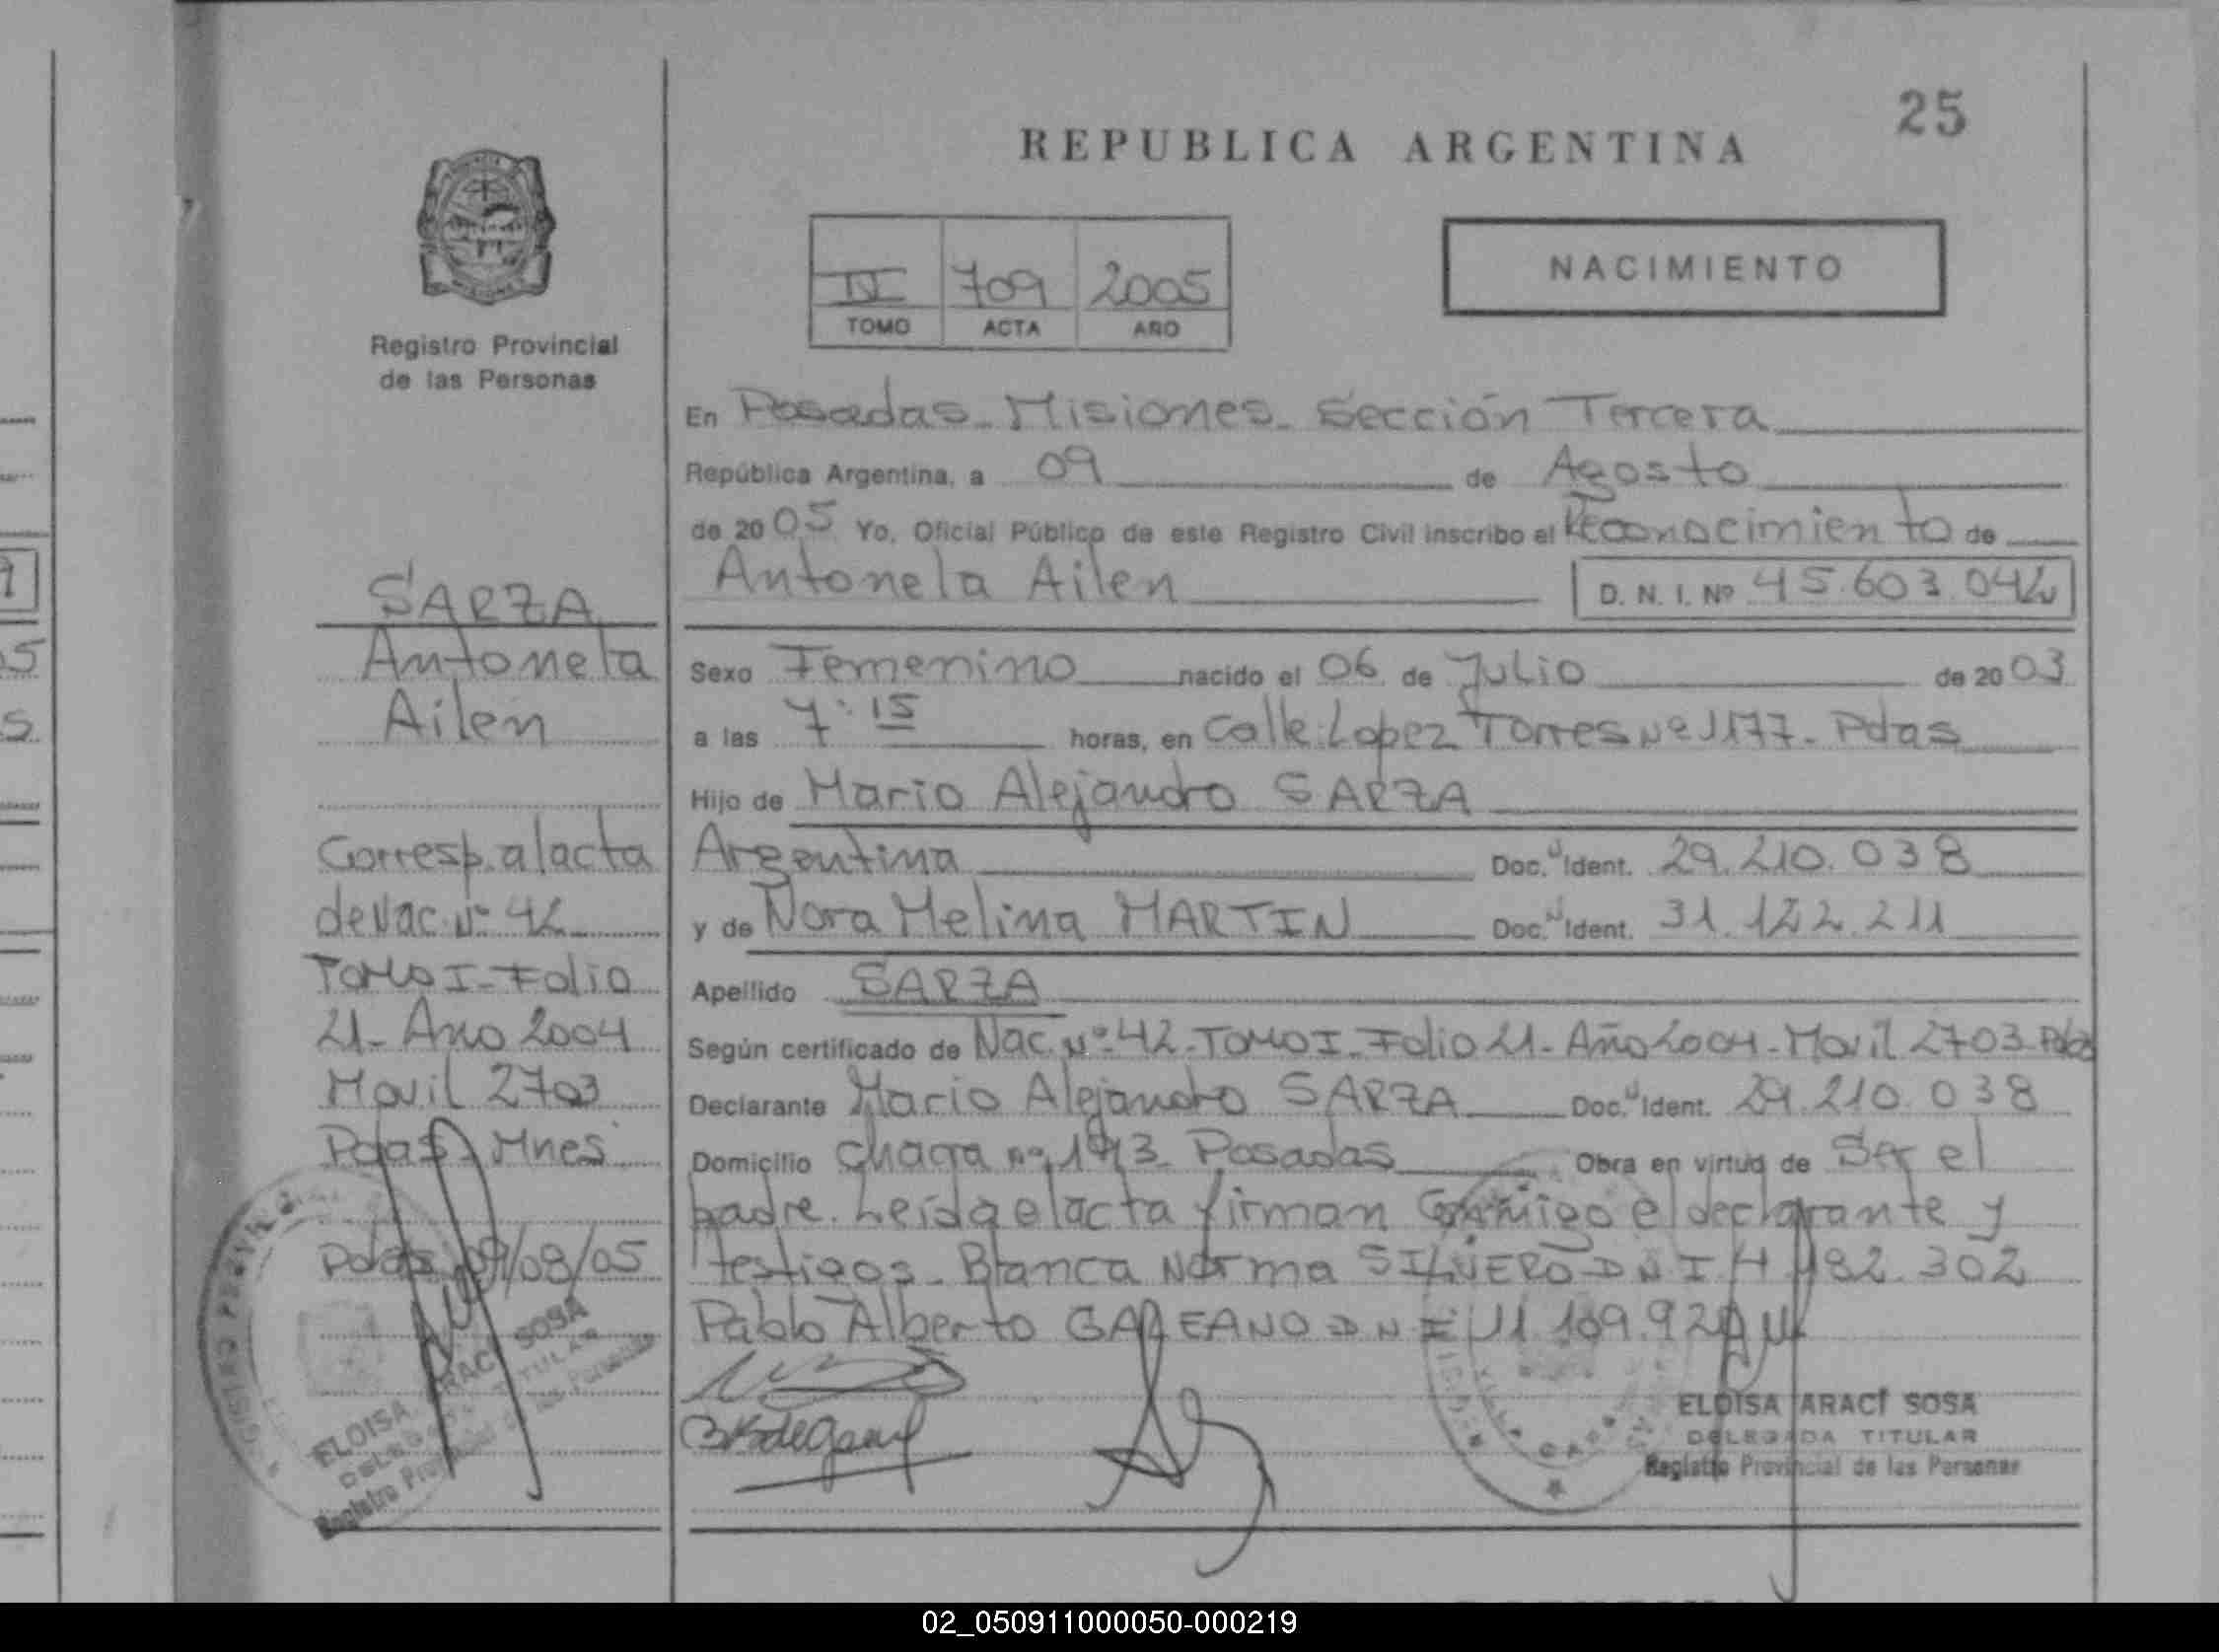 25
REPUBLICA ARGENTINA
NACIMIENTO
709 2005
TOMO ACTA AÑO
Registro Provincial
de las Personas
SARZA
Antonela
Ailen
Corresp. al acta
de Nac. Nº 42
Tomo I - Folio
21 - Año 2004
Movil 2703
Pdas Mnes
Pdas 09/08/05
ELOISA ARACI SOSA
En Posadas - Misiones - Sección Tercera
República Argentina, a 09 de Agosto
de 2005 Yo, Oficial Público de este Registro Civil inscribo el Reconocimiento de
Antonela Ailen D. N. I. Nº 45.603.042
Sexo Femenino nacido el 06 de Julio de 2003
a las 7:15 horas, en Calle Lopez Torres Nº 1177 - Pdas
Hijo de Mario Alejandro SARZA
Argentina Doc. Ident. 29.210.038
y de Nora Melina MARTIN Doc. Ident. 31.122.211
Apellido SARZA
Según certificado de Nac. Nº 42 - Tomo I - Folio 21 - Año 2004 - Movil 2703 - Pdas
Declarante Mario Alejandro SARZA Doc. Ident. 29.210.038
Domicilio Posadas Obra en virtud de Ser el
padre. Leída el acta firman Conmigo el declarante y
testigos - Blanca Norma SILVERO DNI
Pablo Alberto GALEANO DNI
ELOISA ARACI SOSA
DELEGADA TITULAR
Registro Provincial de las Personas
02_050911000050-000219